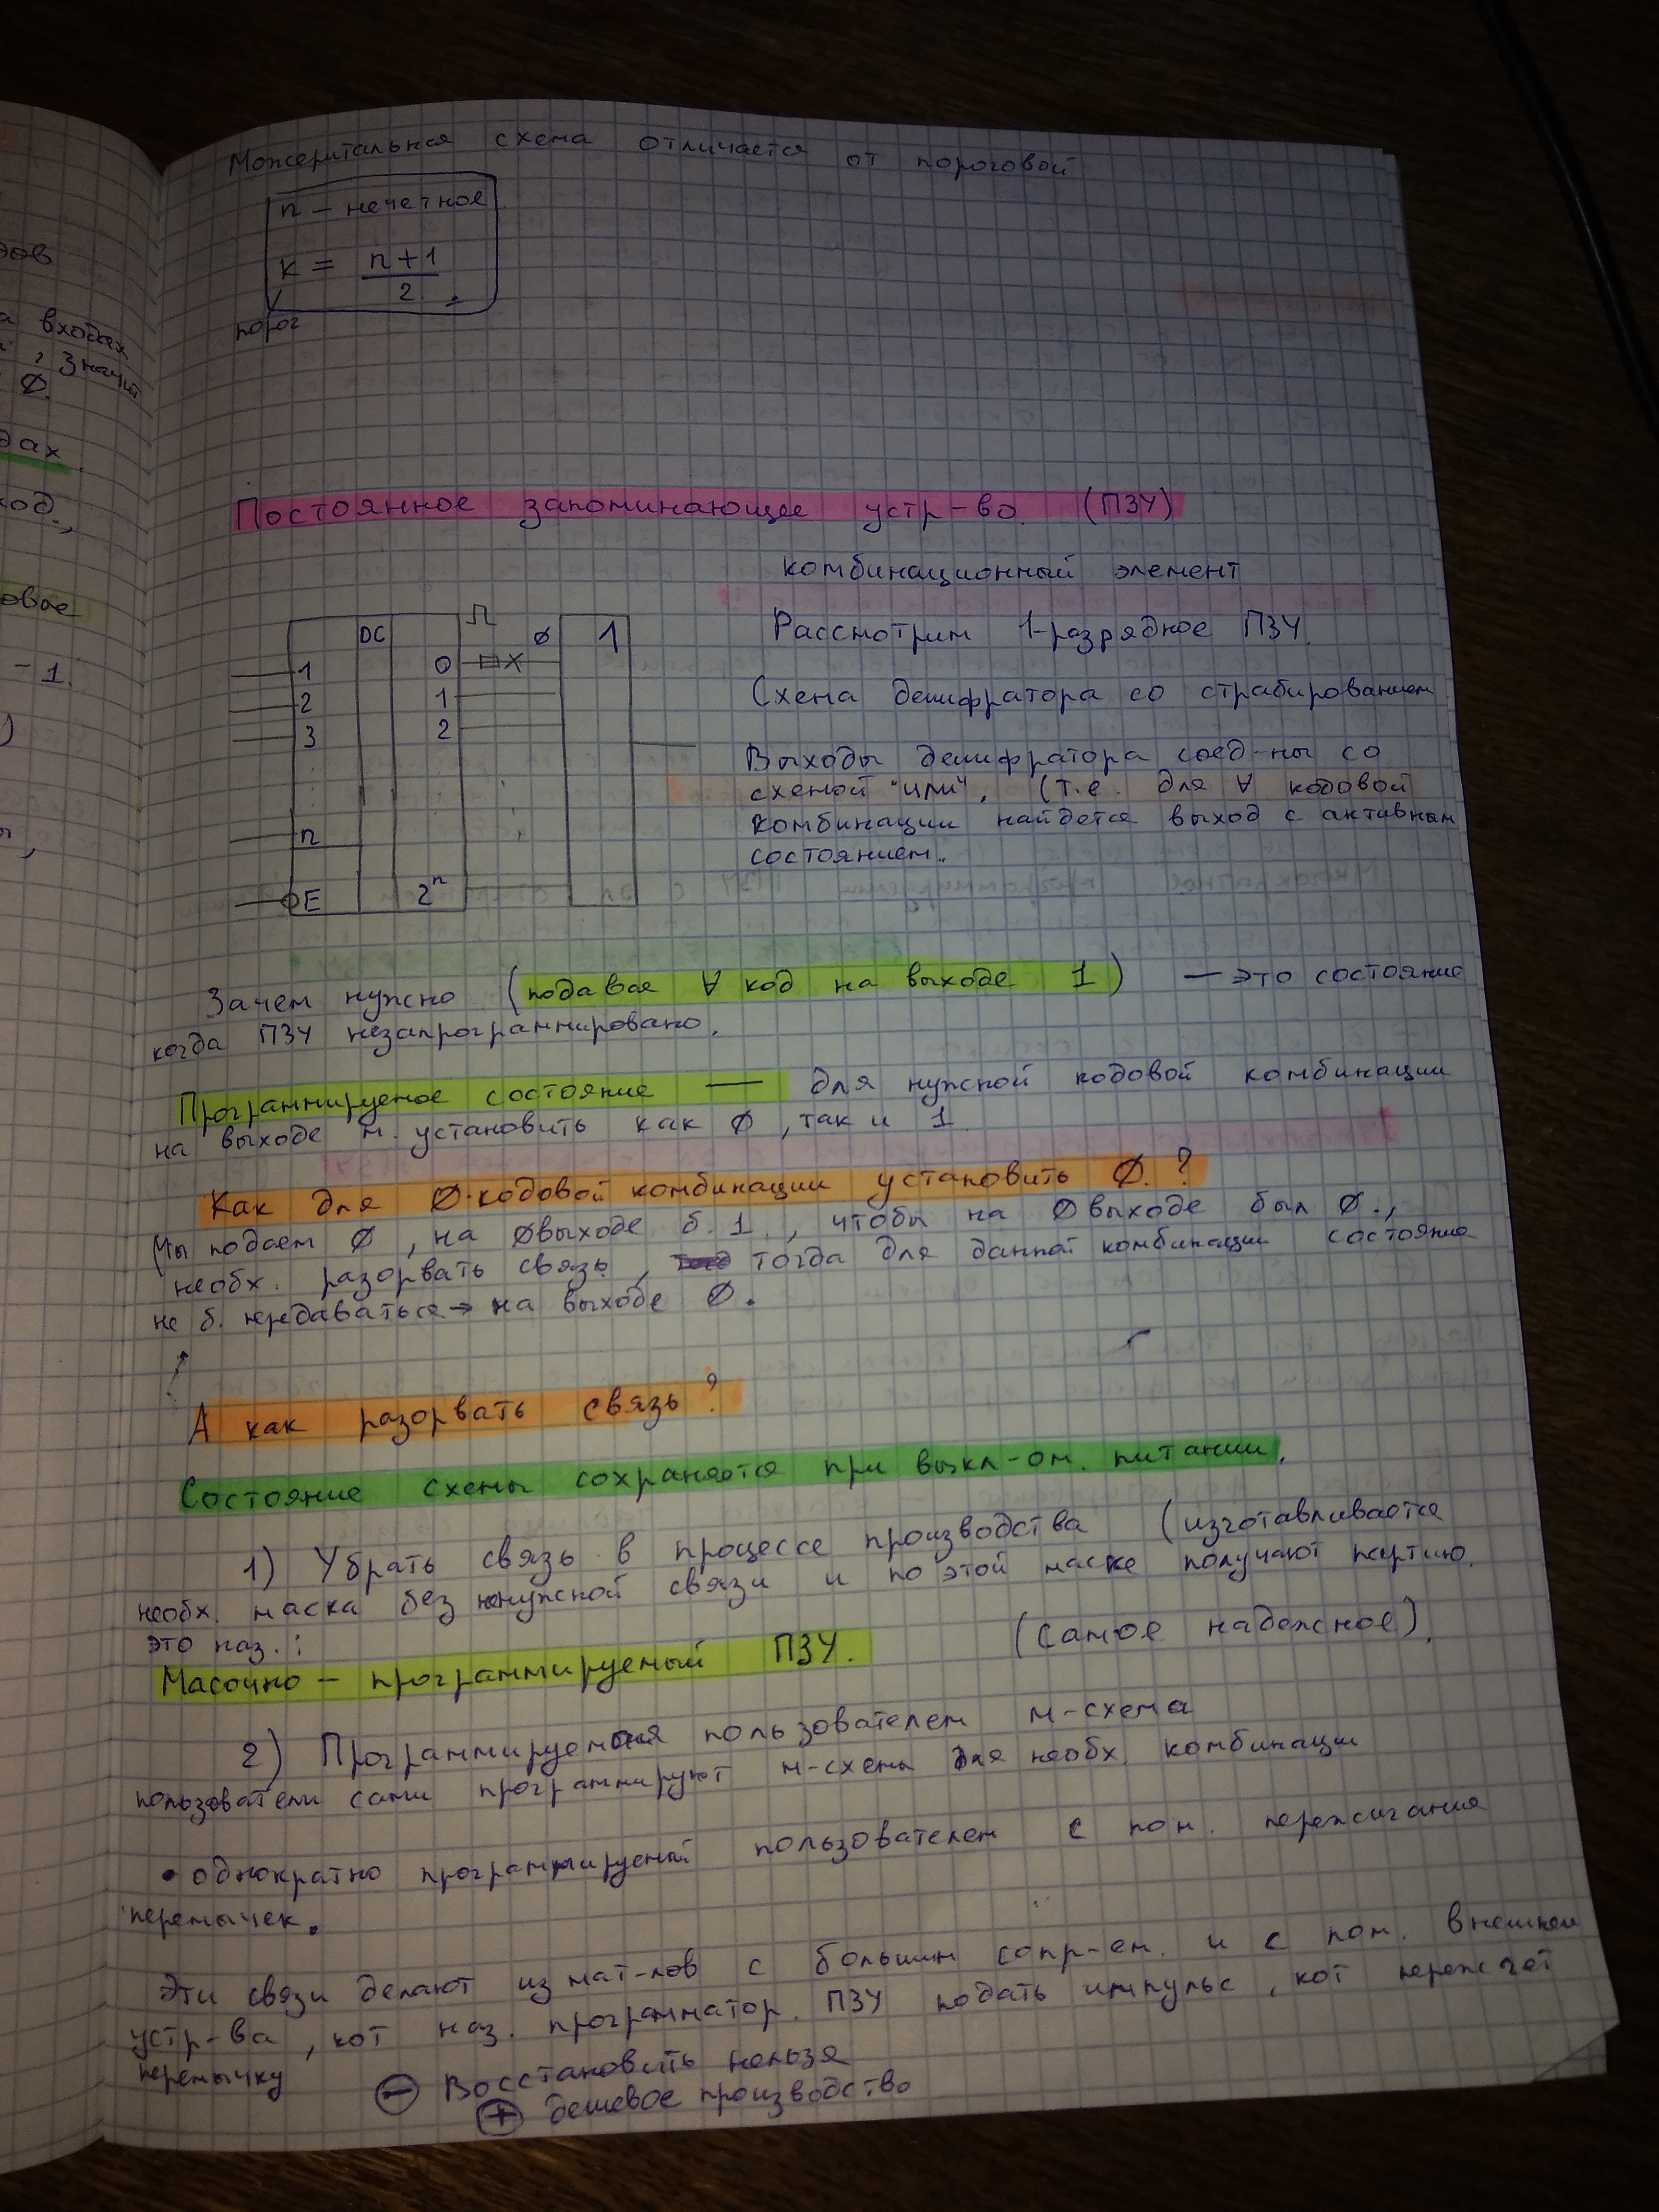 дов
а входах
, значит
Ø.
дах
ход.,
овое
-1.
)
Мажеритальная схема отличается от пороговой
n – нечетное
k = n+1
2
порог
Постоянное запоминающее устр-во. (ПЗУ)
комбинационный элемент
Рассмотрим 1-разрядное ПЗУ.
Схема дешифратора со страбированием.
Выходы дешифратора соед-ны со
схемой "или", (т.е. для ∀ кодовой
комбинации найдется выход с активным
состоянием.
DC
Ø 1
1 0
2 1
3 2
n
E 2ⁿ
Зачем нужно (подавая ∀ код на выходе 1) — это состояние
когда ПЗУ незапрограммировано.
Программируемое состояние — для нужной кодовой комбинации
на выходе м. установить как Ø, так и 1
Как для Ø кодовой комбинации установить Ø.?
Мы подаем Ø, на Øвыходе б. 1., чтобы на Øвыходе был Ø.,
необх. разорвать связь, тогда для данной комбинации состояние
не б. передаваться → на выходе Ø.
А как разорвать связь?
Состояние схемы сохраняется при выкл-ом. питании.
1) Убрать связь в процессе производства (изготавливается
необх. маска без ненужной связи и по этой маске получают партию.
это наз.:
Масочно – программируемый ПЗУ. (самое надежное).
2) Программируемая пользователем м-схема
пользователи сами программируют м-схемы для необх. комбинации
• однократно программируемый пользователем с пом. пережигания
перемычек.
Эти связи делают из мат-лов с большим сопр-ем. и с пом. внешнем
устр-ва, кот наз. программатор. ПЗУ подать импульс, кот пережгет
перемычку
⊖ Восстановить нельзя
⊕ дешевое производство